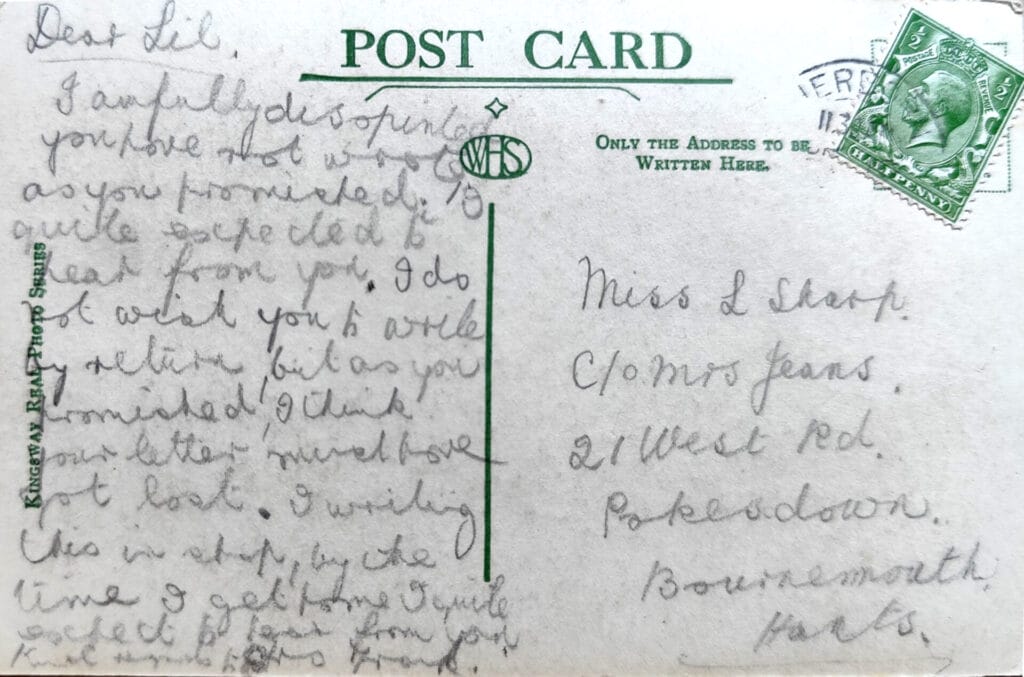 Dear Lil.
I awfully dissopinted
you have not wrote
as you promished. I
quite expected to
hear from you. I do
not wish you to write
by return, but as you
promished, I think
your letter must have
got lost. I writing
this in shop, by the
time I get home I quite
expect to hear from you
Kind regards to Frank.
POST CARD
WHS
ONLY THE ADDRESS TO BE
WRITTEN HERE.
POSTAGE
REVENUE
½
½
HALF PENNY
Miss L Sharp.
C/o Mrs Jeans.
21 West Rd.
Pokesdown.
Bournemouth.
Hants.
KINGSWAY REAL PHOTO SERIES